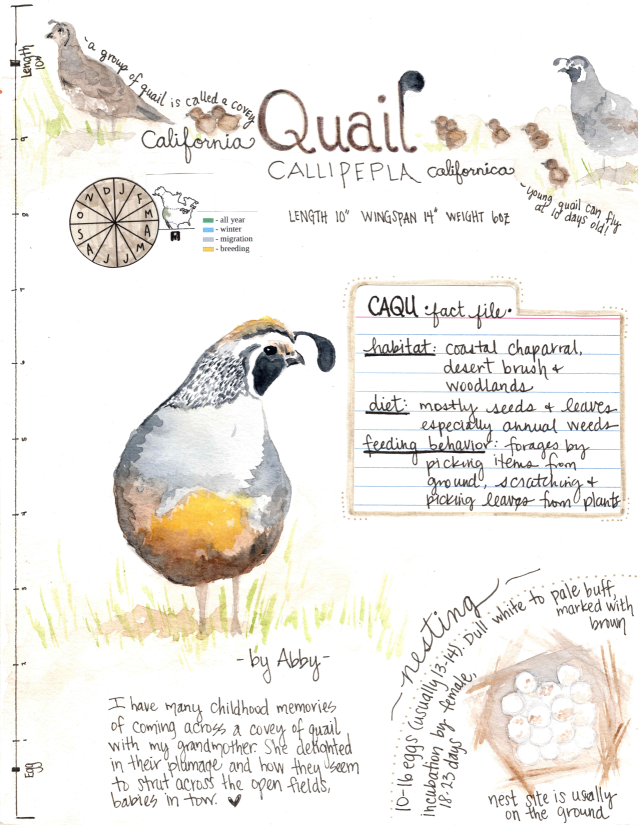 Length
10"
"a group of quail is called a covey
California Quail
CALLIPEPLA californica
~young quail can fly
at 10 days old!
9
8
7
6
5
4
3
2
1
Egg
J F M A M J J A S O N D
- all year
- winter
- migration
- breeding
LENGTH 10" WINGSPAN 14" WEIGHT 6OZ
CAQU •fact file•
habitat: coastal chaparral,
desert brush &
woodlands
diet: mostly seeds & leaves
especially annual weeds
feeding behavior: forages by
picking items from
ground, scratching &
picking leaves from plants
-by Abby-
I have many childhood memories
of coming across a covey of quail
with my grandmother. She delighted
in their plumage and how they seem
to strut across the open fields,
babies in tow.
nesting
10-16 eggs (usually 13-14). Dull white to pale buff,
marked with
brown
incubation by female,
18-23 days
nest site is usually
on the ground